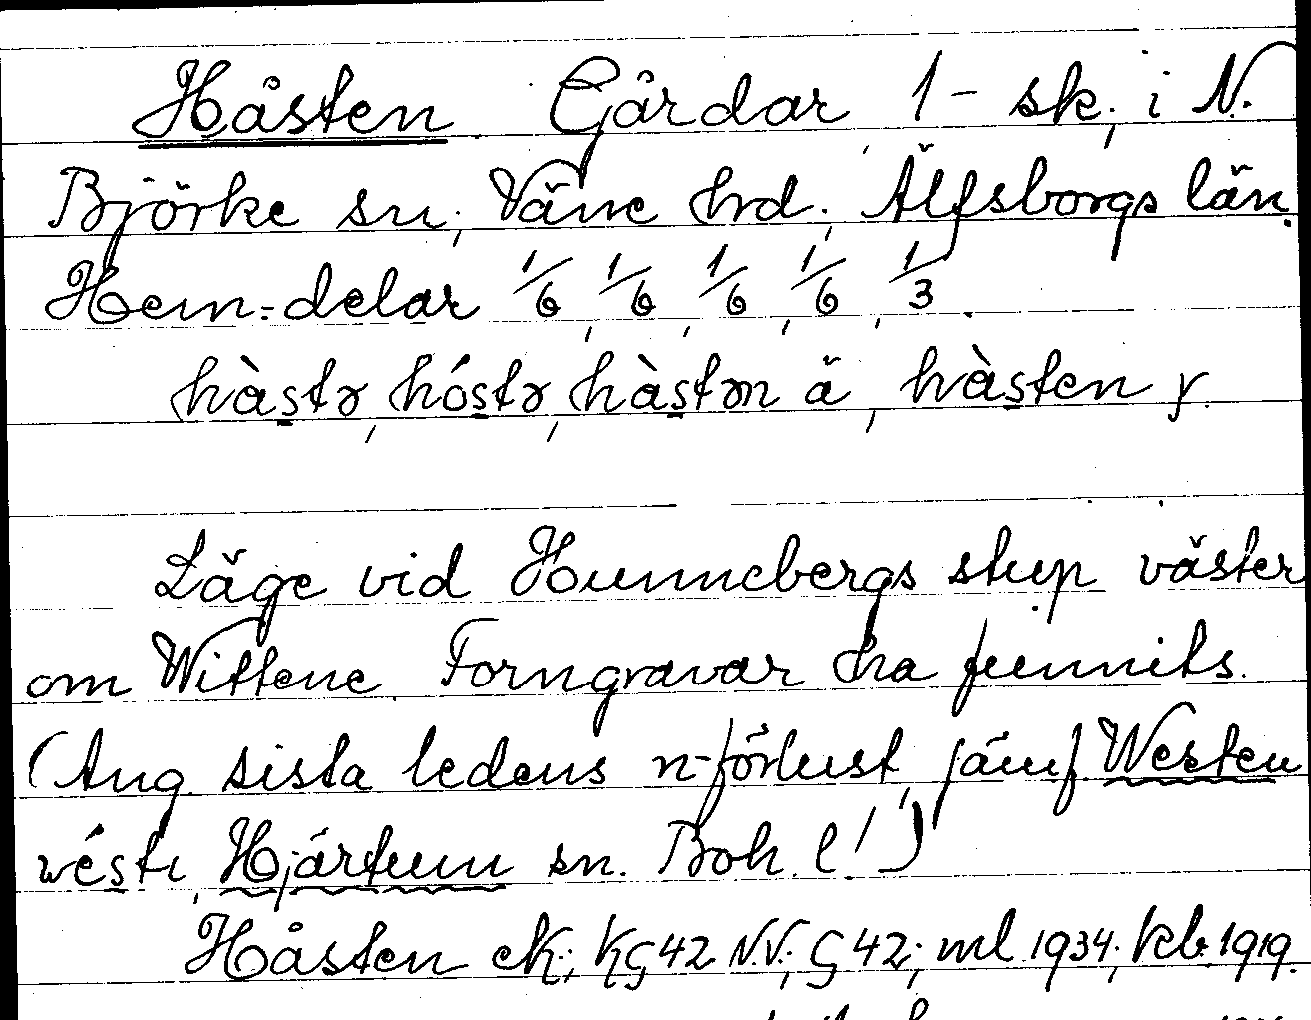 Håsten. Gårdar, 1 - sk; i N.
Björke sn; Väne hrd; Älfsborgs län.
Hem=delar 1/6, 1/6, 1/6, 1/6, 1/3.
hàstə, hóstə, hàstən ä, hàsten y.
Läge vid Hunnebergs stup väster
om Wittene. Forngravar ha funnits.
(Ang. sista ledens n-förlust, jämf Westen
wésti, Hjärtum sn. Boh. (!)
Håsten eK; KG 42 N.V.; G 42; ml 1934; kb 1919.